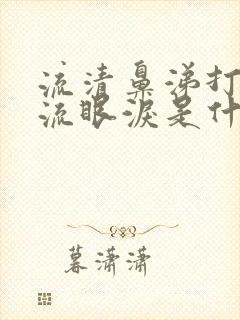 流清鼻涕打
流眼泪是什
暮潇潇